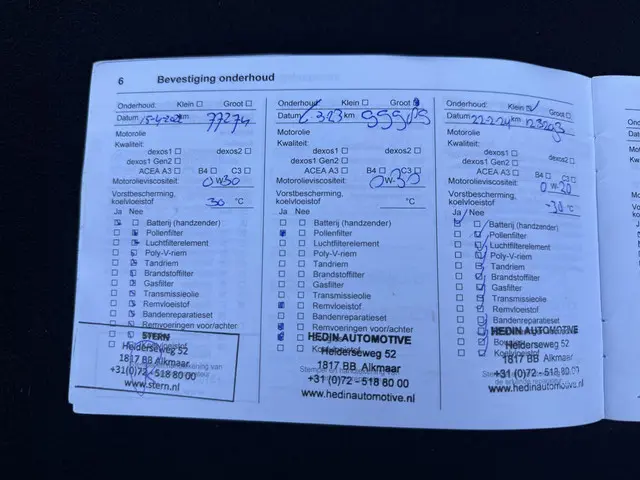 6 Bevestiging onderhoud
Onderhoud: Klein Groot
Datum km 77274
Motorolie
Kwaliteit:
dexos1 dexos2
dexos1 Gen2
ACEA A3 B4 C3
Motorolieviscositeit: 0W30
Vorstbescherming,
koelvloeistof 30 °C
Ja Nee
Batterij (handzender)
Pollenfilter
Luchtfilterelement
Poly-V-riem
Tandriem
Brandstoffilter
Gasfilter
Transmissieolie
Remvloeistof
Bandenreparatieset
Remvoeringen voor/achter
STERN
Helderseweg 52
1817 BB Alkmaar
+31(0)72 - 518 80 00
www.stern.nl
Onderhoud: Klein Groot
Datum 323 km
Motorolie
Kwaliteit:
dexos1 dexos2
dexos1 Gen2
ACEA A3 B4 C3
Motorolieviscositeit: 0W-30
Vorstbescherming,
koelvloeistof °C
Ja Nee
Batterij (handzender)
Pollenfilter
Luchtfilterelement
Poly-V-riem
Tandriem
Brandstoffilter
Gasfilter
Transmissieolie
Remvloeistof
Bandenreparatieset
Remvoeringen voor/achter
HEDIN AUTOMOTIVE
Helderseweg 52
1817 BB Alkmaar
+31 (0)72 - 518 80 00
www.hedinautomotive.nl
Onderhoud: Klein Groot
Datum 22-2-24 km
Motorolie
Kwaliteit:
dexos1 dexos2
dexos1 Gen2
ACEA A3 B4 C3
Motorolieviscositeit: 0W-20
Vorstbescherming,
koelvloeistof -30 °C
Ja Nee
Batterij (handzender)
Pollenfilter
Luchtfilterelement
Poly-V-riem
Tandriem
Brandstoffilter
Gasfilter
Transmissieolie
Remvloeistof
Bandenreparatieset
HEDIN AUTOMOTIVE
Helderseweg 52
1817 BB Alkmaar
+31(0)72 - 518 80 00
www.hedinautomotive.nl